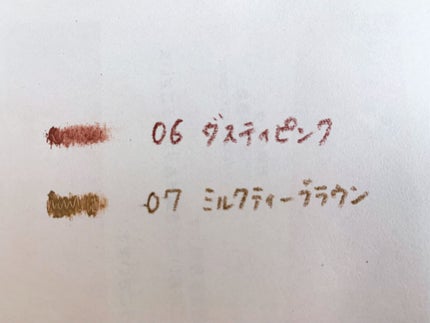 06 ダスティピンク
07 ミルクティーブラウン